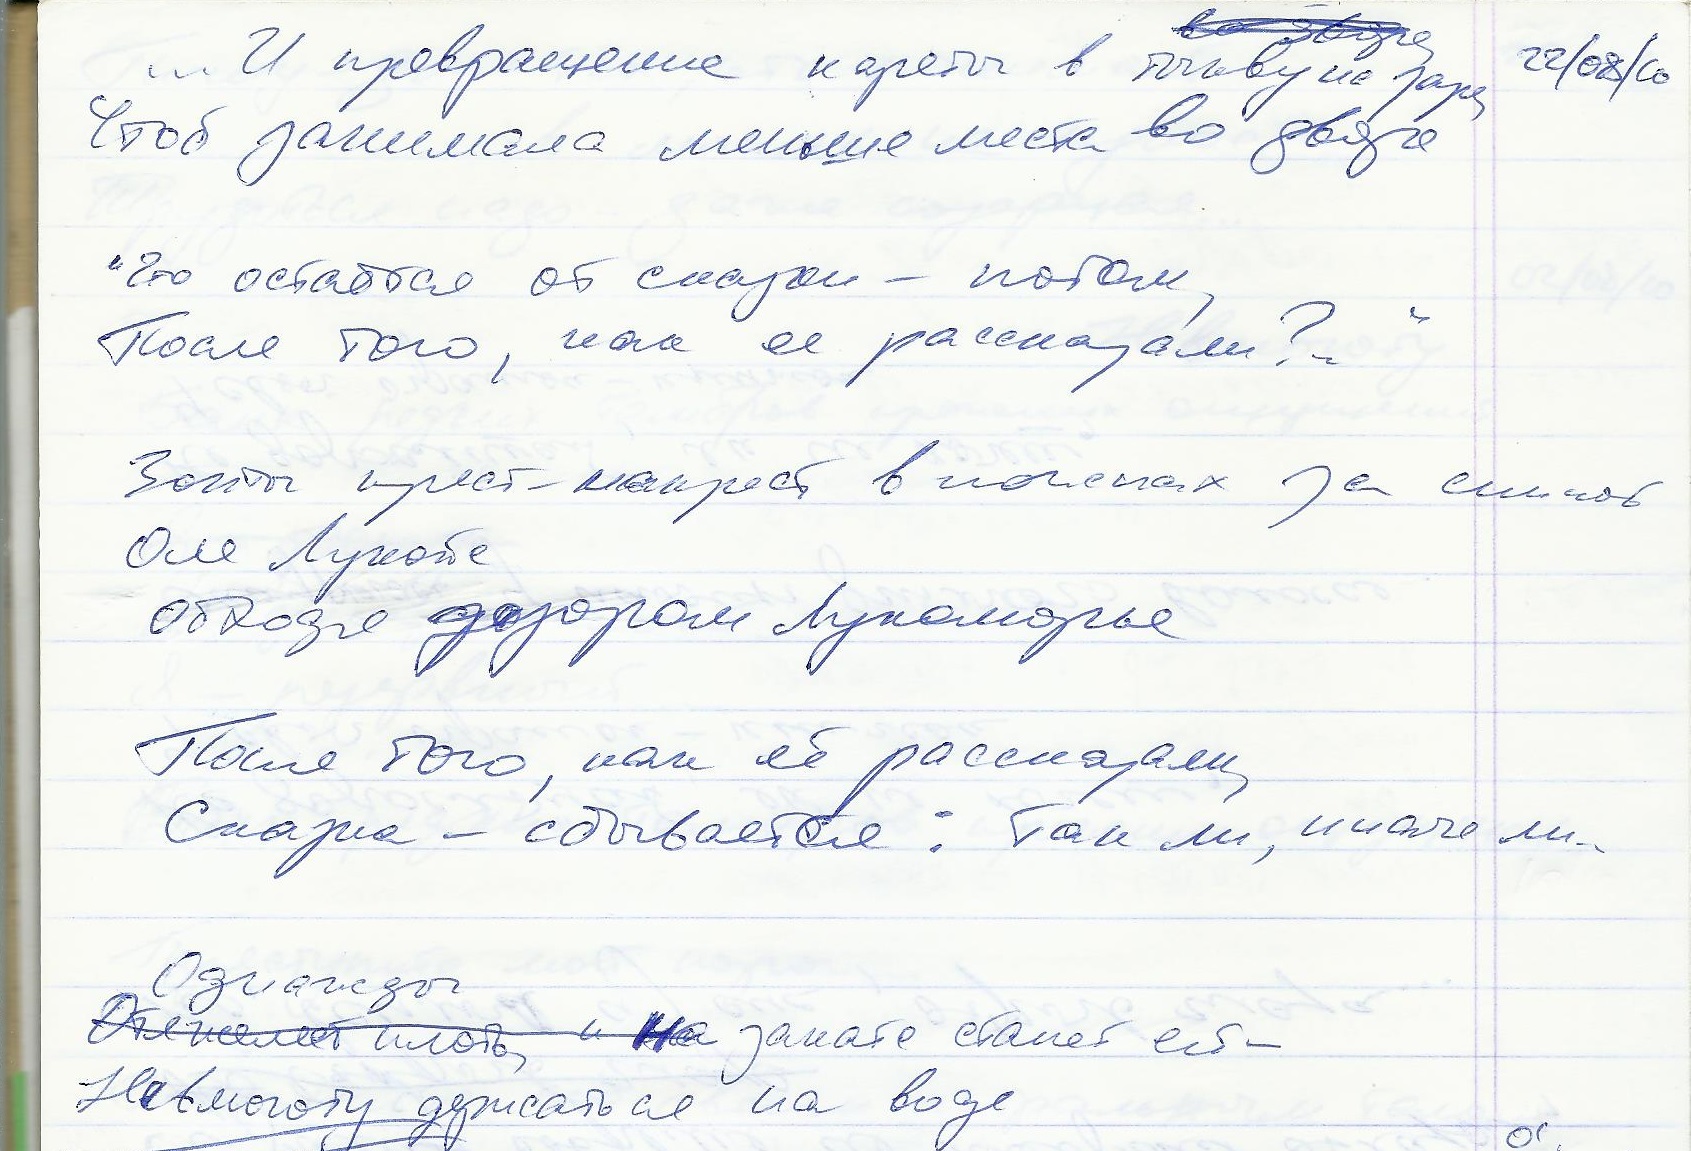 во дворе
... И превращение кареты в тыкву на заре, 22/08/10
Чтоб занимала меньше места во дворе
"Что остаётся от сказки – потом,
После того, как её рассказали?.."
Зонты крест-накрест в поисках за спиной
Оле Лукойе
Обходя дозором Лукоморье
После того, как её рассказали,
Сказка – сбывается: Так ли, иначе ли...
Однажды
Отяжелеет плоть, и на закате станет ей –
Невмоготу держаться на воде